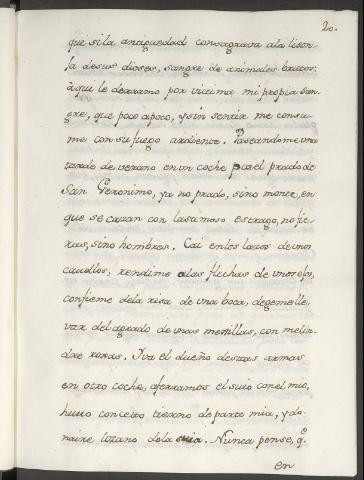 20.
que si la antiguedad consagrava a la lison-
ja de sus dioses, sangre de animales brutos:
aqui le derramo por victima mi propia san-
gre, que poco apoco, y sin sentir me consu-
me con su fuego ardiente. Paseandome una
tarde de verano en un coche por el prado de
San Geronimo, ya no prado, sino monte, en
que se cazan con lastimoso estrago, no fie-
ras, sino hombres. Cai en los lazos de unos
cavellos, rendime a las flechas de unos ojos,
confieme de la risa de una boca, dejeme lle-
var del agrado de unas mexillas, con melin-
dre rosas. Iva el dueño destas armas
en otro coche, aferramos el suio con el mio,
huvo concepto tierno de parte mia, y do-
naire lozano de la suia. Nunca pense, q.e
en